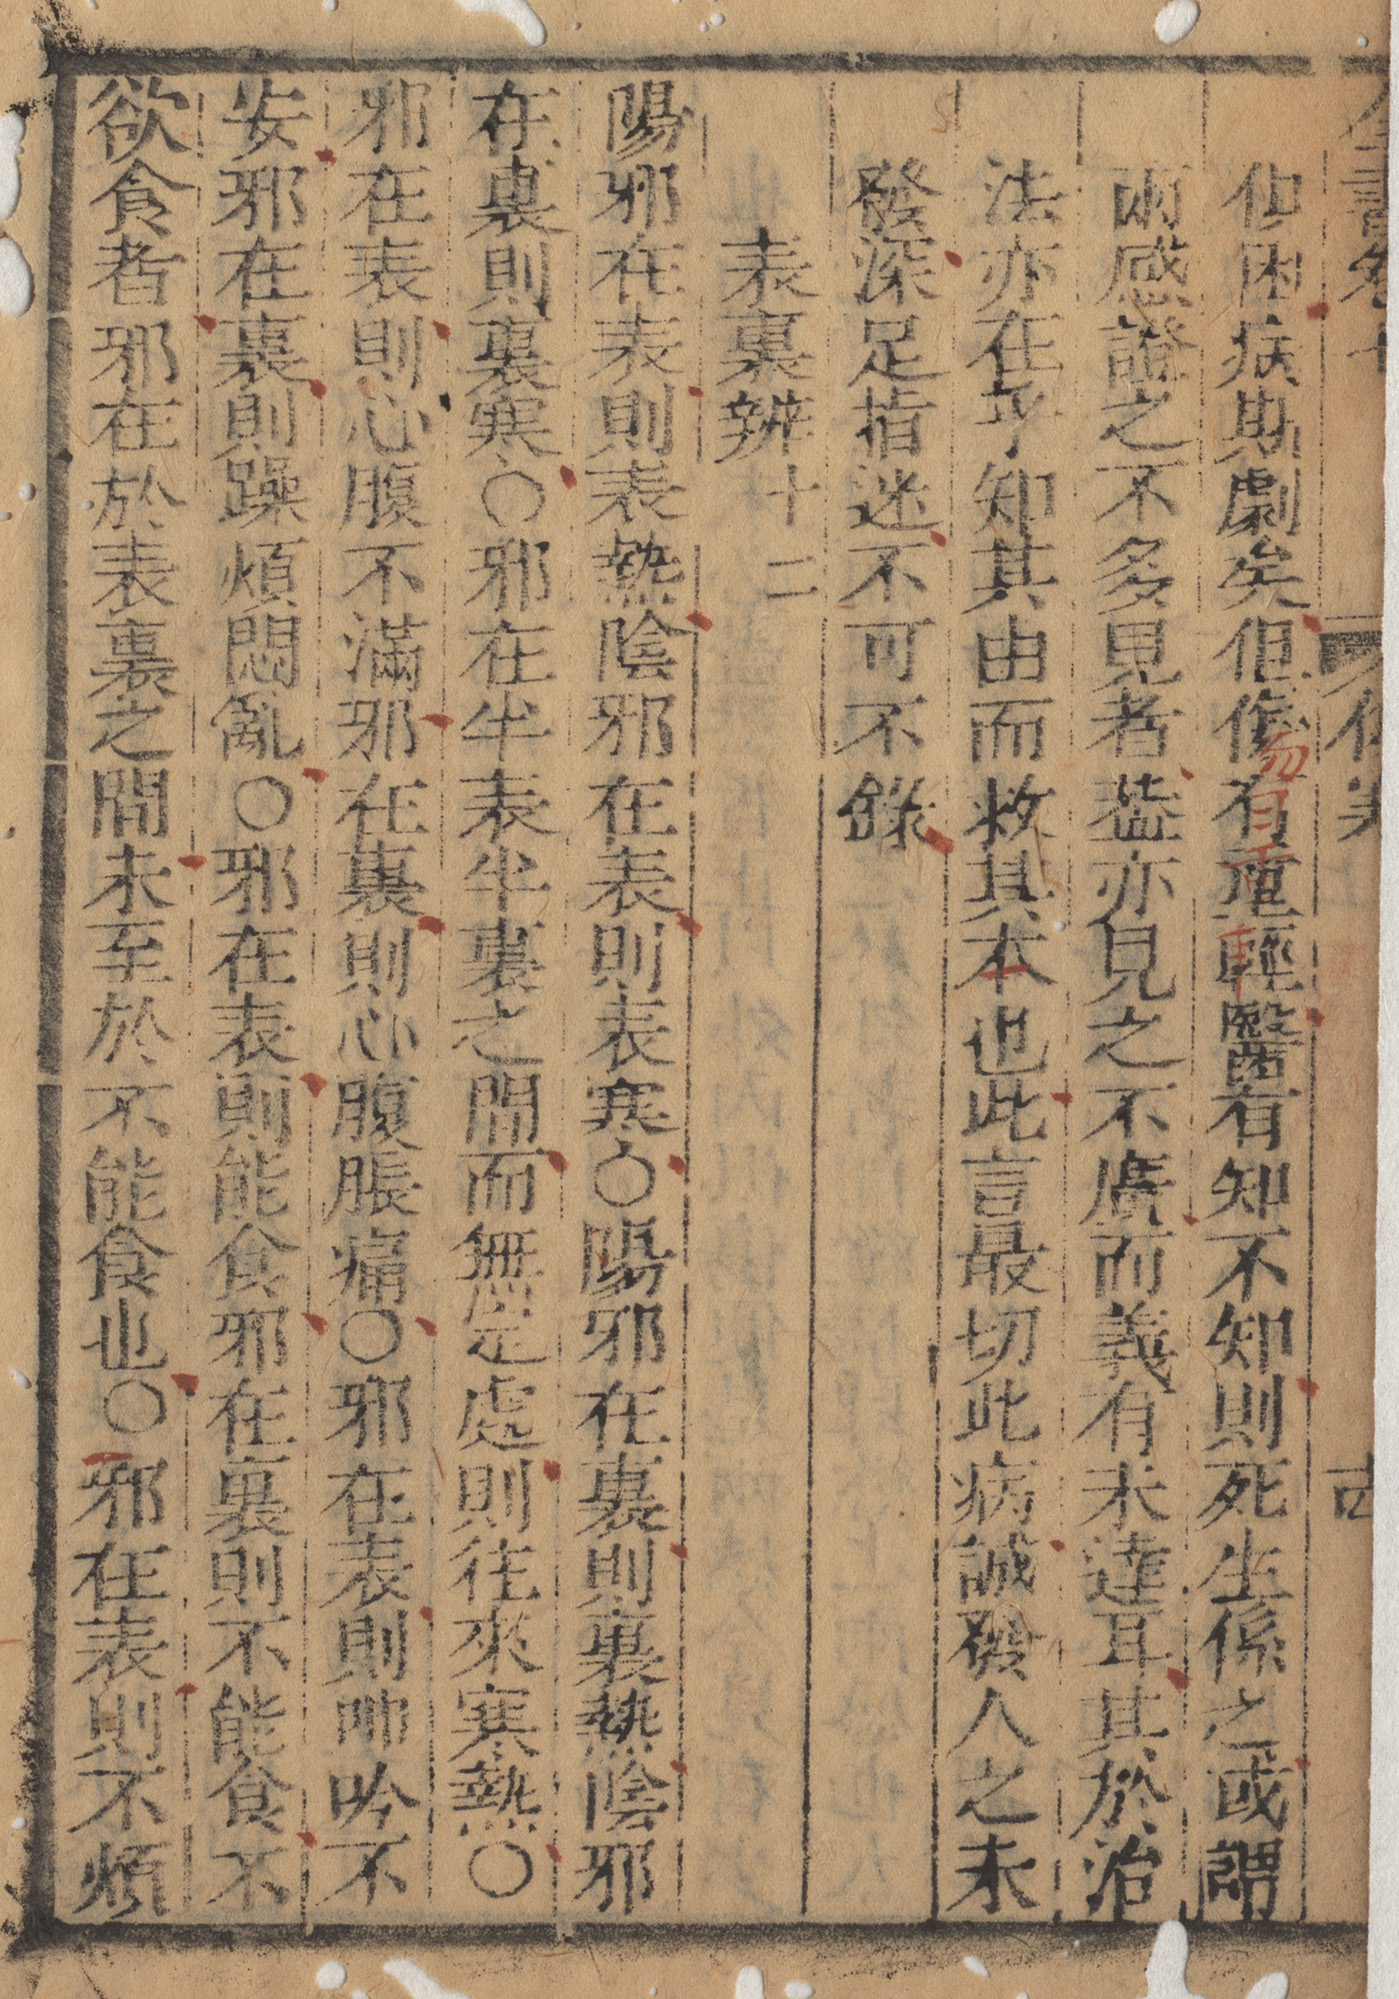 全書卷七 傷寒上 十四
俱困病斯劇矣但傷有重輕醫有知不知則死生係之或謂
兩感證之不多見者蓋亦見之不廣而義有未達耳其於治
法亦在乎知其由而救其本也此言最切此病誠發人之未
發深足指迷不可不錄
表裏辨十二
陽邪在表則表熱陰邪在表則表寒○陽邪在裏則裏熱陰邪
在裏則裏寒○邪在半表半裏之間而無定處則往來寒熱○
邪在表則心腹不滿邪在裏則心腹脹痛○邪在表則呻吟不
安邪在裏則躁煩悶亂○邪在表則能食邪在裏則不能食不
欲食者邪在於表裏之間未至於不能食也○邪在表則不煩